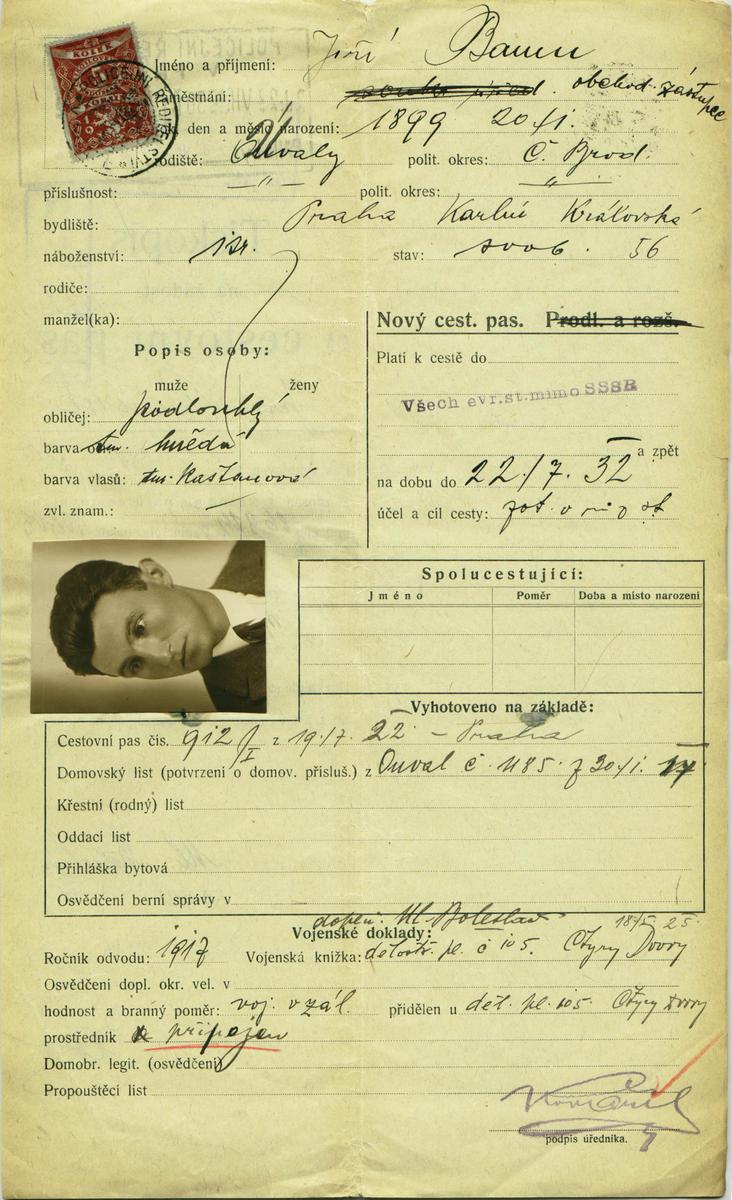 Jméno a příjmení: Jiří Baum
městnání: obchod. zástupce
k, den a měsíc narození: 1899 20/1.
rodiště: Ouvaly polit. okres: Č. Brod.
příslušnost: —"— polit. okres: —"—
bydliště: Praha Karlín Královská
náboženství: isr. stav: svob. 56
rodiče:
manžel(ka):
Nový cest. pas. Prodl. a rozš.
Popis osoby:
Platí k cestě do
muže ženy
Všech evr.st.mimo SSSR
obličej: podlouhlý
barva hnědá
a zpět
barva vlasů: tm. kaštanová
na dobu do 22/7. 32
zvl. znam.: —
účel a cíl cesty:
Spolucestující:
Jméno Poměr Doba a místo narození
Vyhotoveno na základě:
Cestovní pas čís. 912/I z 19/7. 22 – Praha
Domovský list (potvrzení o domov. přísluš.) z Ouval č. 1185 z 30/1.
Křestní (rodný) list
Oddací list
Přihláška bytová
Osvědčení berní správy v
doplň. Ml Boleslav 18/5. 25.
Vojenské doklady:
Ročník odvodu: 1917 Vojenská knížka: dělostř. pl. č 105. Čtyry Dvory
Osvědčení dopl. okr. vel. v
hodnost a branný poměr: voj. v zál. přidělen u děl. pl. 105. Čtyry Dvory
prostředník připojen
Domobr. legit. (osvědčení)
Propouštěcí list
podpis úředníka.